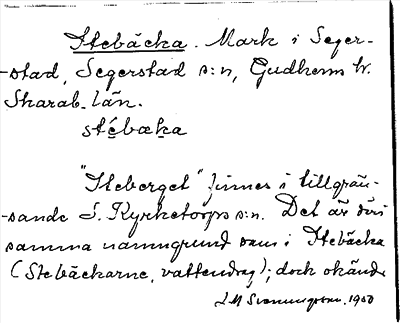 Stebäcka. Mark i Seger-
-stad, Segerstad s:n, Gudhems hr.
Skarab. län.
stébæka
"Steberget" finnes i tillgrän-
sande S. Kyrketorps s:n. Det är
samma namngrund som i Stebäcka
(Stebäckarne, vattendrag); dock okänd
1900